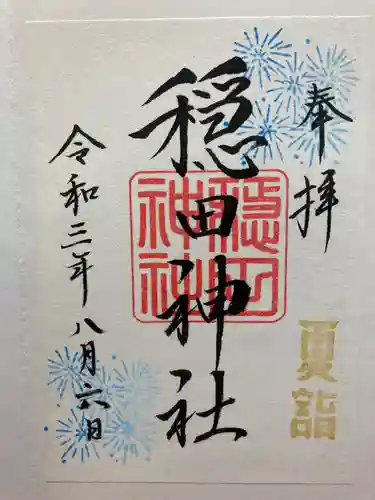 奉拝
夏詣
穏田神社
穏田神社
令和三年八月六日